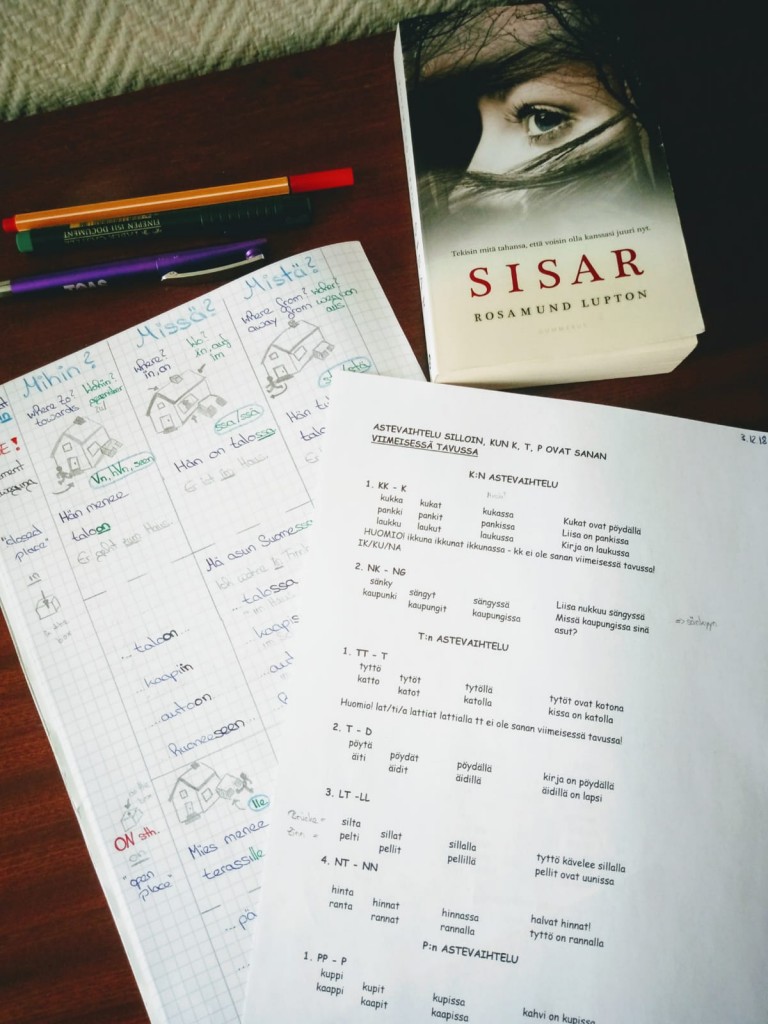 Tekisin mitä tahansa, että voisin olla kanssasi juuri nyt.
SISAR
ROSAMUND LUPTON
Mihin? Missä? Mistä?
where to? Wohin?
towards
where? Wo?
in, on in, auf
im
where from? Woher?
away from
Vn, hVn, seen
ssa/ssä
Hän menee
taloon
Hän on talossa
"closed
place"
in
Mä asun Suomessa
...talossa
...taloon
...kaapiin
...autoon
huoneeseen...
ON sth.
on
"open
place"
lle
Mies menee
terassille
3.12.18
ASTEVAIHTELU SILLOIN, KUN K, T, P OVAT SANAN
VIIMEISESSÄ TAVUSSA
K:N ASTEVAIHTELU
1. KK - K
kukka kukat kukassa Kukat ovat pöydällä
pankki pankit pankissa Liisa on pankissa
laukku laukut laukussa Kirja on laukussa
HUOMIO! ikkuna ikkunat ikkunassa - kk ei ole sanan viimeisessä tavussa!
IK/KU/NA
2. NK - NG
sänky sängyt sängyssä Liisa nukkuu sängyssä
kaupunki kaupungit kaupungissa Missä kaupungissa sinä
asut?
T:n ASTEVAIHTELU
1. TT - T
tyttö tytöt tytöllä tytöt ovat kotona
katto katot katolla kissa on katolla
Huomio! lat/ti/a lattiat lattialla tt ei ole sanan viimeisessä tavussa!
2. T - D
pöytä pöydät pöydällä kirja on pöydällä
äiti äidit äidillä äidillä on lapsi
3. LT -LL
silta sillat sillalla tyttö kävelee sillalla
pelti pellit pellillä pellit ovat uunissa
4. NT - NN
hinta hinnat hinnassa halvat hinnat!
ranta rannat rannalla tyttö on rannalla
P:n ASTEVAIHTELU
1. PP - P
kuppi kupit kupissa kahvi on kupissa
kaappi kaapit kaapissa